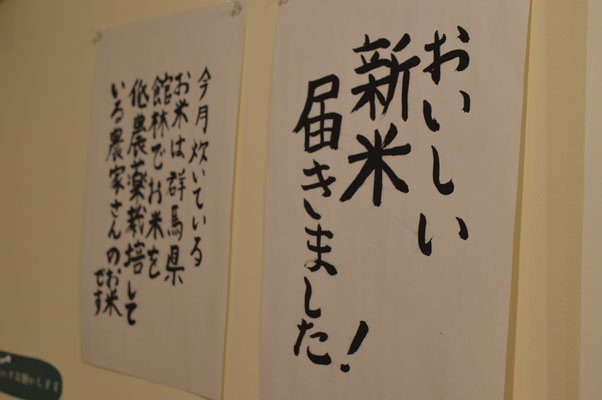 おいしい
新米
届きました!
今月炊いている
お米は群馬県
館林でお米を
低農薬栽培して
いる農家さんのお米
です